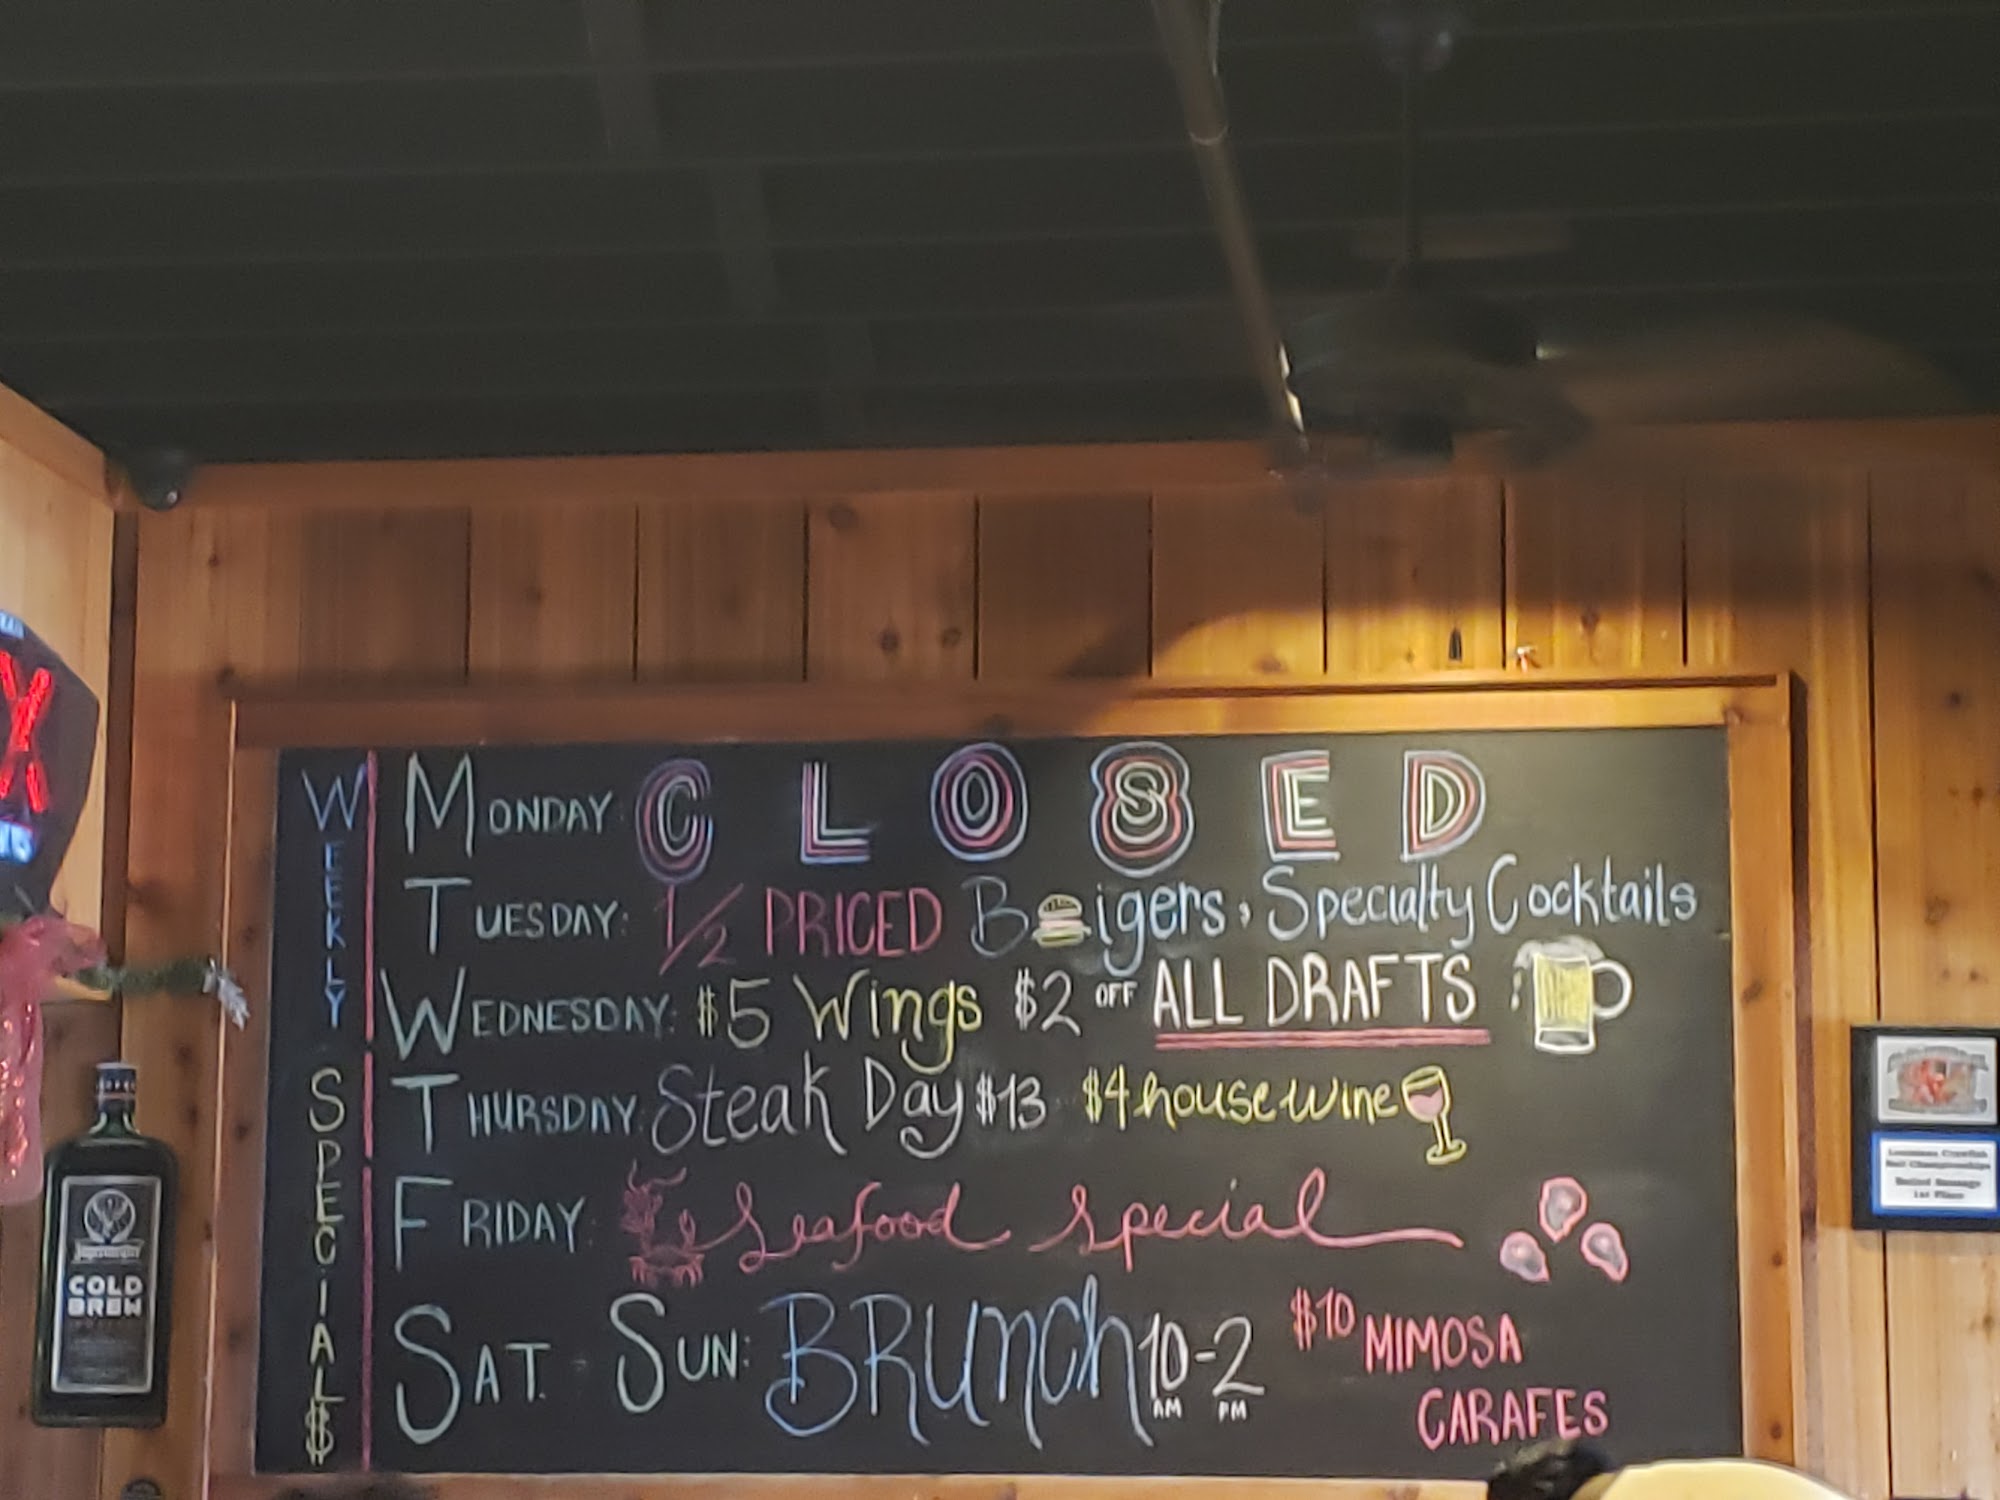 WEEKLY SPECIAL$
MONDAY: CLOSED
TUESDAY: 1/2 PRICED Bigers, Specialty Cocktails
WEDNESDAY: $5 Wings $2 OFF ALL DRAFTS
THURSDAY: Steak Day $13 $4 house wine
FRIDAY: Seafood Special
SAT. SUN: BRUNCH 10-2 $10 MIMOSA
AM PM CARAFES
COLD
BREW
Louisiana Crawfish
Boil Championships
Boiled Sausage
1st Place